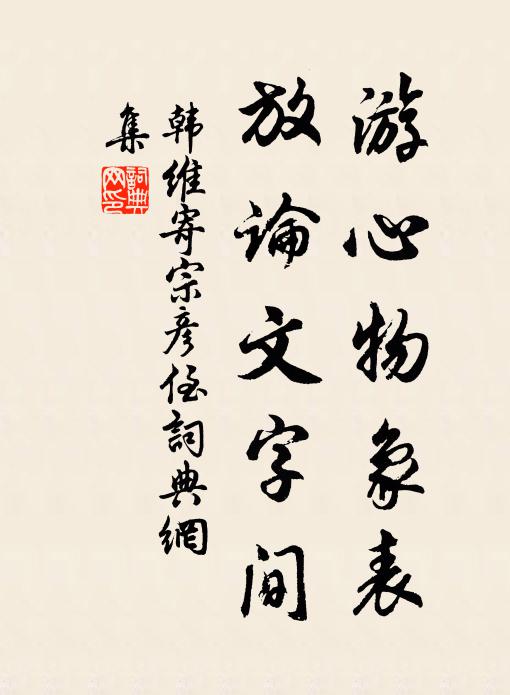 游心物象表
放论文字间
韩维寄宗彦侄詞典網
集
詞典
网印